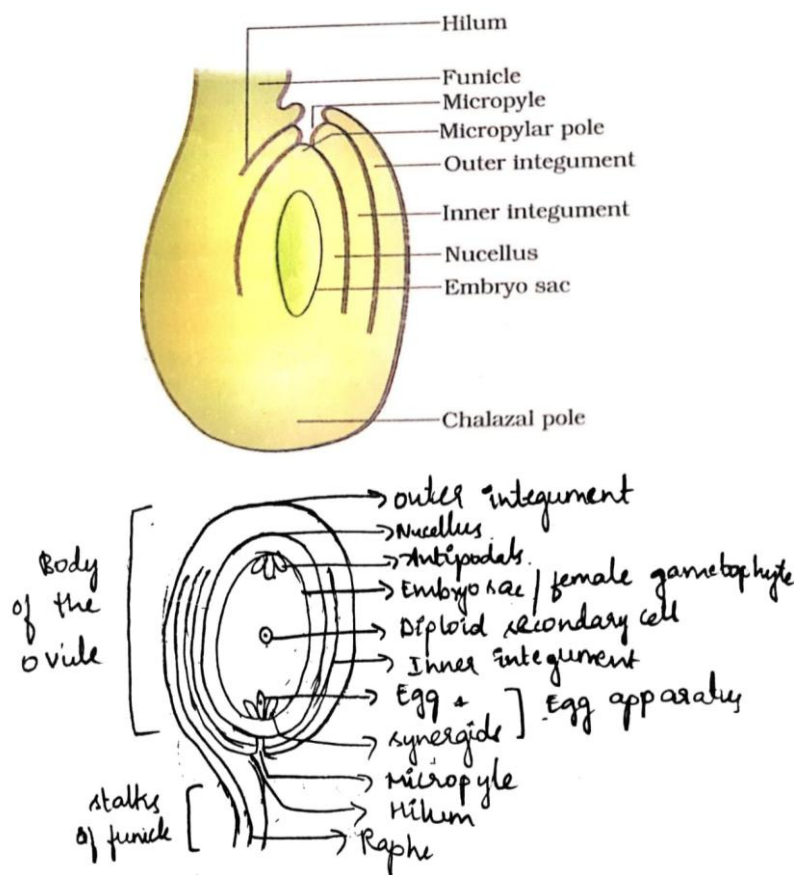 Hilum
Funicle
Micropyle
Micropylar pole
Outer integument
Inner integument
Nucellus
Embryo sac
Chalazal pole
outer integument
Nucellus
Antipodals.
Embryo sac / female gametophyte
Diploid secondary cell
Inner integument
Egg +
synergids
Egg apparatus
Micropyle
Hilum
Raphe
Body
of the
ovule
stalks
of funicle